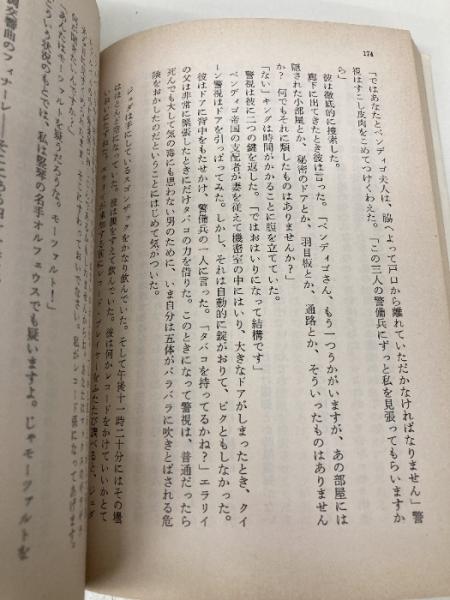 174
「ではあなたとベンディゴ夫人は、脇へよって戸口から離れていただかなければなりません」警
視はすこし皮肉をこめてつけくわえた。「この三人の警備兵にずっと私を見張ってもらいますか
ら」
彼は徹底的に捜索した。
廊下に出てきたとき彼は言った。「ベンディゴさん、もう一つうかがいますが、あの部屋には
隠された小部屋とか、秘密のドアとか、羽目板とか、通路とか、そういったものはありません
か？何でもそれに類したものはありませんか？」
「ない」キングは時間がかかることに腹を立てていた。
警視は彼に二つの鍵を返した。「ではおはいりになって結構です」
ベンディゴ帝国の支配者が妻を従えて機密室の中にはいり、大きなドアがしまったとき、クイ
ーン警視はドアを引っぱってみた。しかし、それは自動的に錠がおりて、ビクともしなかった。
彼はドアに背中をもたせかけ、警備兵の一人に言った。「タバコを持ってるかね？」エラリイ
の父は非常に緊張したときにだけタバコの力を借りた。このときになって警視は、普通だったら
死んでも大して気の毒にも思わない男のために、いま自分は五体がバラバラに吹きとばされる危
険をおかしたのだということにはじめて気がついた。
ジュダは手にしているスゴンザックをかなり飲んでいた。そして午後十一時二十分にはその壜
はほとんど空になっていた。
「あなたはモーツァルトを疑うだろうな。モーツァルト！」
こういう状況のもとでは、私は竪琴の名手オルフェウスでも疑いますよ。じゃモーツァルトを
交響曲のフィナーレ